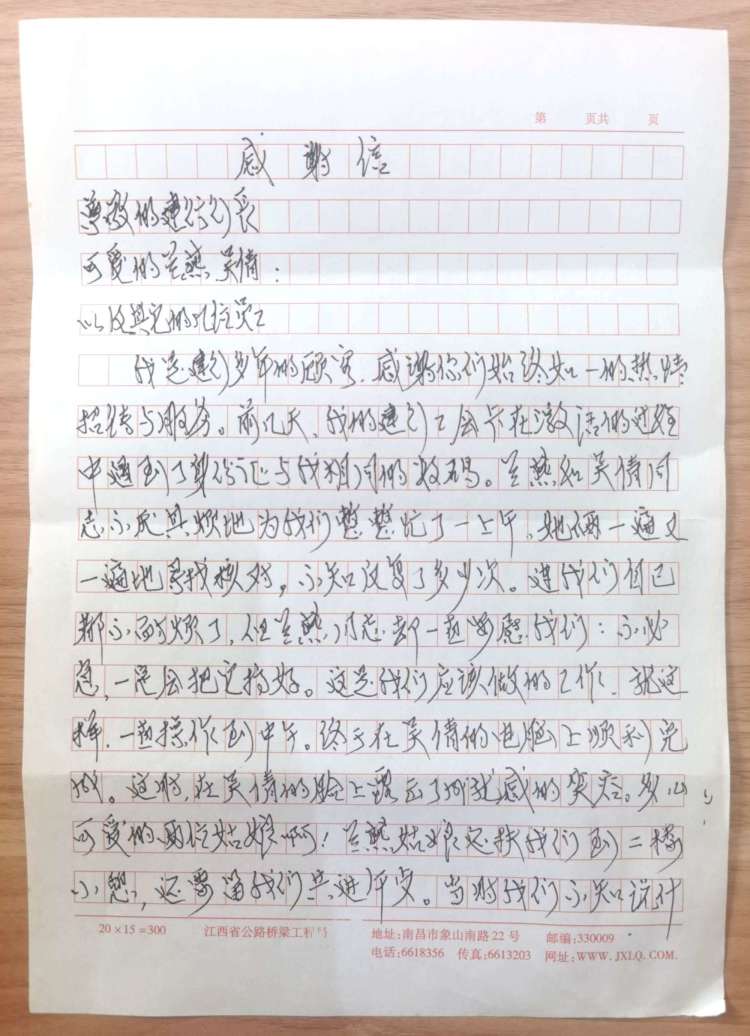 第 页共 页
感谢信
尊敬的建行行长
可爱的兰燕 吴倩：
以及其它的几位员工
我是建行多年的顾客，感谢你们始终如一的热情
招待与服务。前几天，我的建行工会卡在激活的过程
中遇到了身份证与我相同的数码。兰燕和吴倩同
志不厌其烦地为我们整整忙了一上午，她俩一遍又
一遍地寻找核对，不知反复了多少次。连我们自己
都不耐烦了，但兰燕同志却一直安慰我们：不必
急，一定会把它搞好。这是我们应该做的工作，就这
样，一直操作到中午。终于在吴倩的电脑上顺利完
成。这时，在吴倩的脸上露出了成就感的笑容。多么
可爱的两位姑娘啊！兰燕姑娘还扶我们到二楼
小憩，还要留我们共进午宴。当时我们不知说什
20×15=300 江西省公路桥梁工程 地址：南昌市象山南路22号 邮编：330009
电话：6618356 传真：6613203 网址：WWW.JXLQ.COM.